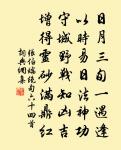 日月三旬一遇逢
以時易日法神功
守城野戰知凶吉
增得靈砂滿鼎紅
張伯端絕句六十四首
詞典網集